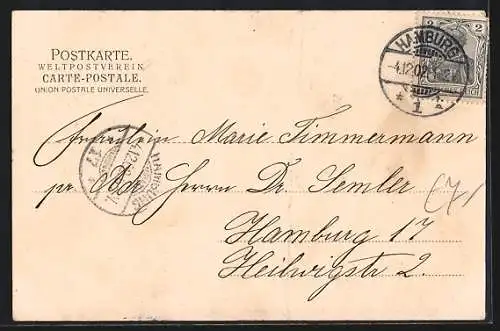 POSTKARTE.
WELTPOSTVEREIN
CARTE-POSTALE.
UNION POSTALE UNIVERSELLE.
HAMBURG
-4.12.02
* 1 *
2 2
REICH
HAMBURG
4.12.02
* 17
Fräulein Marie Timmermann
pr. Adr. Herrn Dr. Semler
Hamburg 17
Heilwigstr 2.